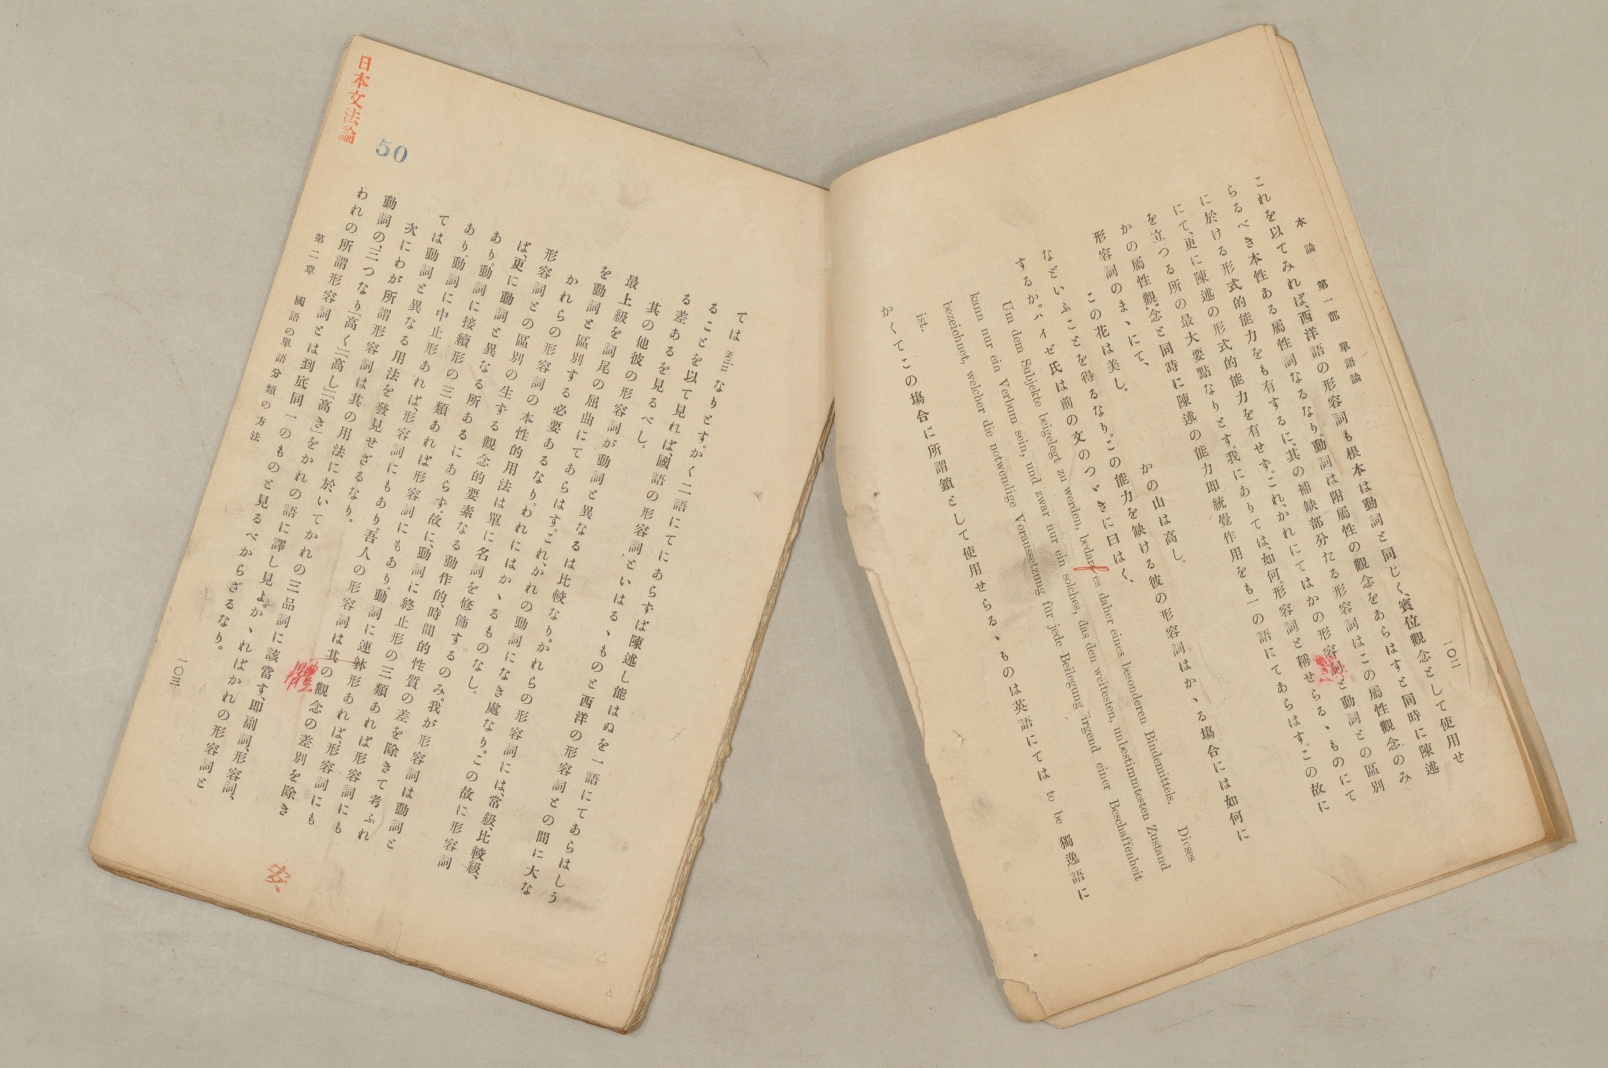 本論 第一部 單語論
一〇二
これを以てみれば、西洋語の形容詞も根本は動詞と同じく、賓位觀念として使用せ
らるべき本性ある屬性詞なるなり。動詞は附屬性の觀念をあらはすと同時に陳述
に於ける形式的能力をも有するに、其の補缺部分たる形容詞はこの屬性觀念のみ
にて、更に陳述の形式的能力を有せず。これ、かれにてはかの形容詞と動詞との區別
を立つる所の最大要點なりとす。我にありては、如何、形容詞と稱せらるゝものにて
かの屬性觀念と同時に陳述の能力即統覺作用をも一の語にてあらはす。この故に
形容詞のまゝにて、
この花は美し。 かの山は高し。
などいふことを得るなり。この能力を缺ける彼の形容詞はかゝる場合には如何に
するか。ハイゼ氏は前の文のつゞきに曰はく、
Um dem Subjekte beigelegt zu werden, bedarf es daher eines besonderen Bindemittels. Dieses
kann nur ein Verbum sein, und zwar nur ein solches, das den weitesten, unbestimmtesten Zustand
bezeichnet, welcher die notwendige Voraussetzung für jede Beilegung irgend einer Beschaffenheit
ist.
かくてこの場合に所謂鎖として使用せらるゝものは英語にては to be 獨逸語に
ては sein なりとす。かく二語にてにあらずば陳述し能はぬを一語にてあらはしう
ることを以て見れば、國語の形容詞といはるゝものと西洋の形容詞との間に大な
る差あるを見るべし。
其の他彼の形容詞が動詞と異なるは比較なり。かれらの形容詞には、常級、比較級、
最上級を詞尾の屈曲にてあらはす。これ、かれの動詞になき處なり。この故に形容詞
を動詞と區別する必要あるなり。われにはかゝるものなし。
かれらの形容詞の本性的用法は單に名詞を修飾するのみ。我が形容詞は動詞と
形容詞との區別の生ずる觀念的要素なる動作的、時間的性質の差を除きて考ふれ
ば、更に動詞と異なる所あるにあらず。故に、動詞に終止形の三類あれば形容詞にも
あり。動詞に接續形の三類あれば形容詞にもあり。動詞に連躰形あれば、形容詞にも
あり。動詞に中止形あれば、形容詞にもあり。吾人の形容詞は其の觀念の差別を除き
ては動詞と異なる用法を發見せざるなり。
次にわが所謂形容詞は其の用法に於いてかれの三品詞に該當す。即副詞、形容詞、
動詞の三つなり。「高く」「高し」「高き」をかれの語に譯し見よ。かゝればかれの形容詞と
われの所謂形容詞とは到底同一のものと見るべからざるなり。
第二章 國語の單語分類の方法
一〇三
體
日本文法論
50